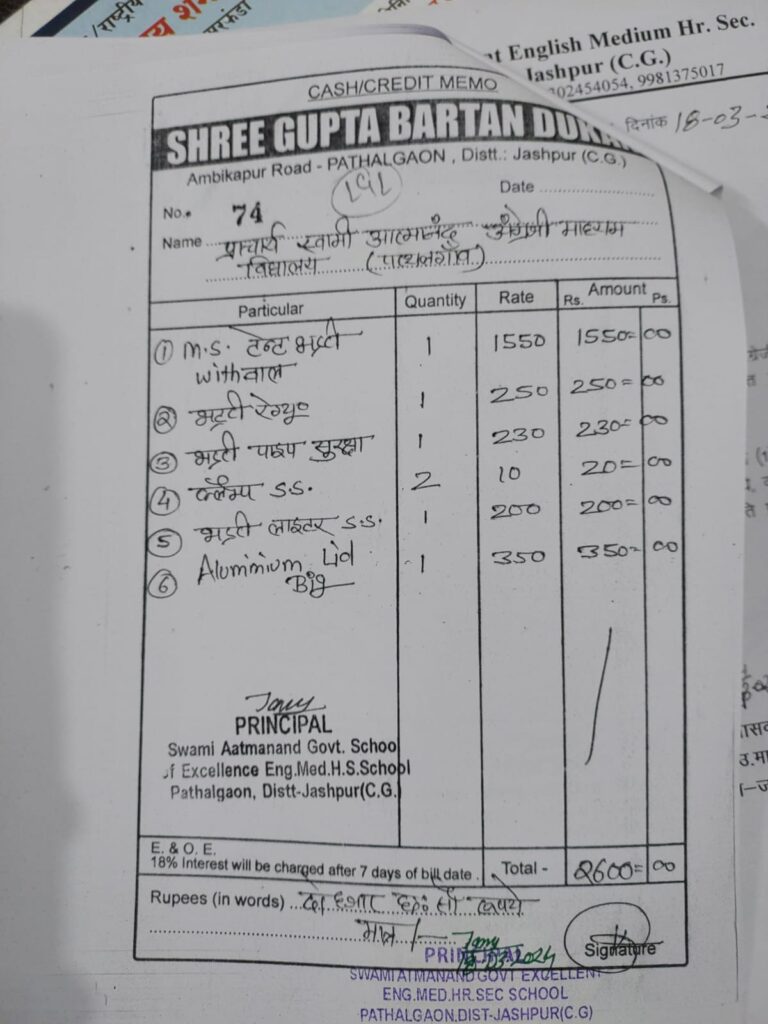 /राष्ट्रीय
nt English Medium Hr. Sec.
Jashpur (C.G.)
302454054, 9981375017
दिनांक 18-03-
CASH/CREDIT MEMO
SHREE GUPTA BARTAN DUKA
Ambikapur Road - PATHALGAON , Distt.: Jashpur (C.G.)
No. 74
Date
Name प्राचार्य स्वामी आत्मानंद अंग्रेजी माध्यम
विद्यालय (पत्थलगाँव)
Particular Quantity Rate Amount Rs. Ps.
① M.S. टेन्ट भट्टी 1 1550 1550=00
with वाल
② भट्टी रेग्यू० 1 250 250=00
③ भट्टी पाइप सुरक्षा 1 230 230=00
④ क्लैम्प S.S. 2 10 20=00
⑤ भट्टी लाइटर S.S. 1 200 200=00
⑥ Aluminium Lid 1 350 350=00
Big
PRINCIPAL
Swami Aatmanand Govt. Schoo
of Excellence Eng.Med.H.S.School
Pathalgaon, Distt-Jashpur(C.G.)
E. & O. E.
18% Interest will be charged after 7 days of bill date . Total - 2600=00
Rupees (in words) दो हजार छः सौ रूपये
मात्र /-
Signature
PRINCIPAL
18-03-2024
SWAMI ATMANAND GOVT EXCELLENT
ENG.MED.HR.SEC SCHOOL
PATHALGAON.DIST-JASHPUR(C.G)